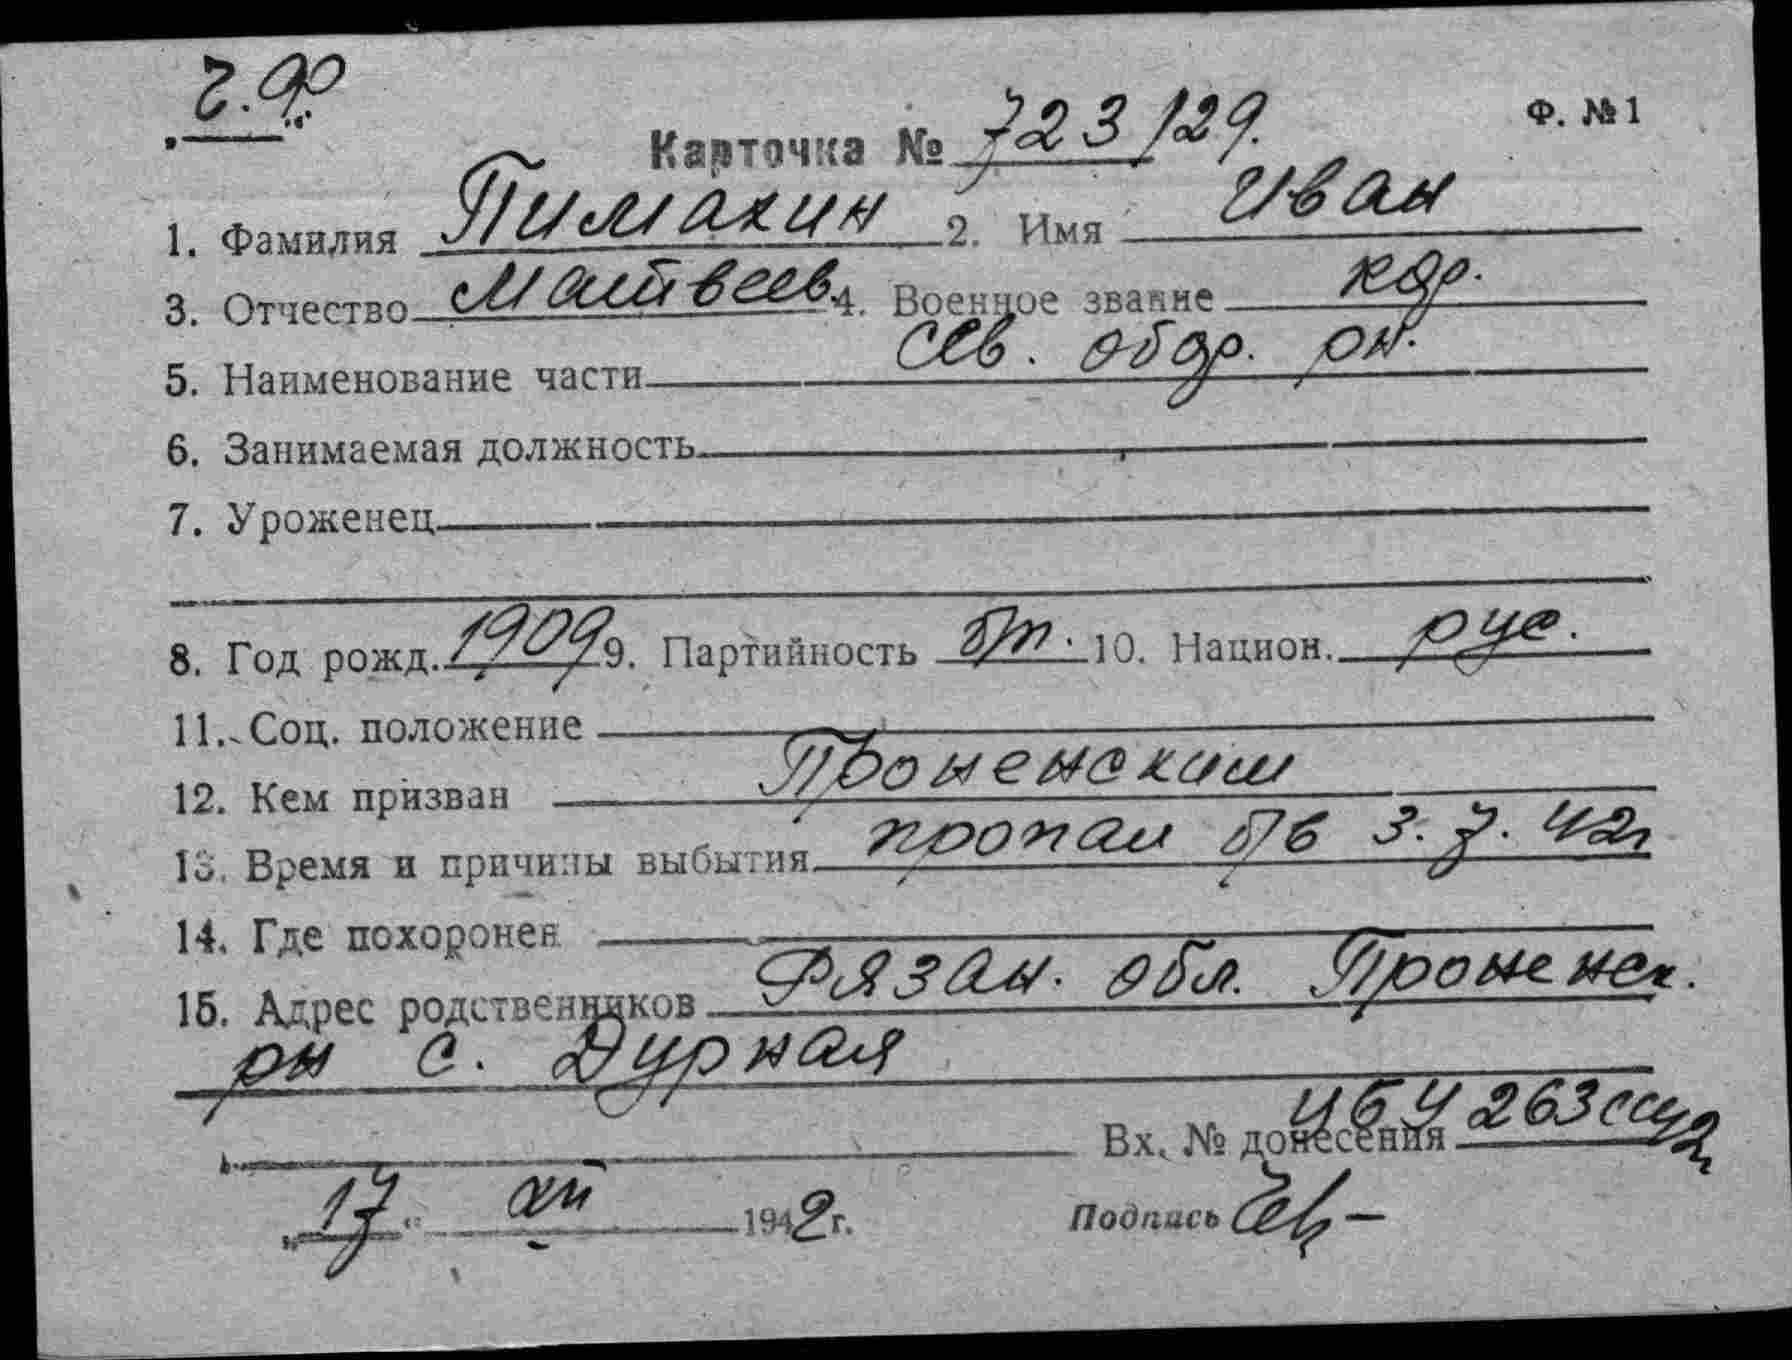 Ч.Ф.
Карточка № 723/129. Ф. № 1
1. Фамилия Пимахин 2. Имя Иван
3. Отчество Матвеев. 4. Военное звание кдр.
5. Наименование части обор. рн.
6. Занимаемая должность
7. Уроженец
8. Год рожд. 1909 9. Партийность б/п. 10. Национ. рус.
11. Соц. положение
12. Кем призван Проненским
13. Время и причины выбытия пропал б/в 3.7.42г
14. Где похоронен
15. Адрес родственников Рязан. обл. Проненск.
рн с. Дурная
Вх. № донесения 263
„17“ XII 1942 г. Подпись